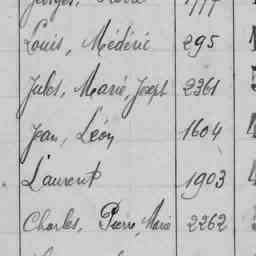 Louis, Médéric 295
Jules, Marie, Joseph 2361
Jean, Léon 1604
Laurent 1903
Charles, Pierre, Marie 2262